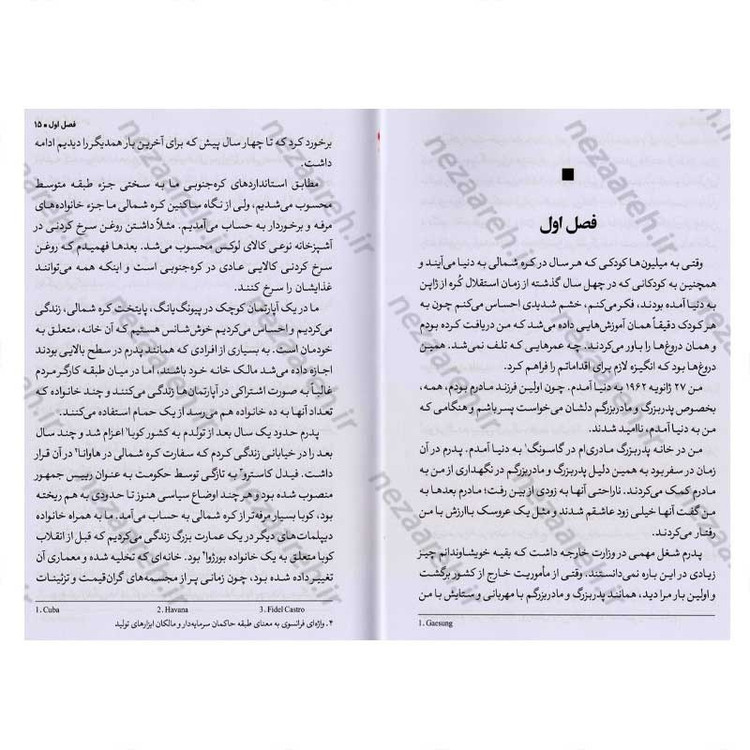 فصل اول
وقتی به میلیون‌ها کودکی که هر سال در کره شمالی به دنیا می‌آیند و
همچنین به کودکانی که در چهل سال گذشته از زمان استقلال کُره از ژاپن
به دنیا آمده بودند، فکر می‌کنم، خشم شدیدی احساس می‌کنم چون به
هر کودک دقیقاً همان آموزش‌هایی داده می‌شد که من دریافت کرده بودم
و همان دروغ‌ها را باور می‌کردند. چه عمرهایی که تلف نمی‌شد. همین
دروغ‌ها بود که انگیزه لازم برای اقداماتم را فراهم کرد.
من ۲۷ ژانویه ۱۹۶۲ به دنیا آمدم. چون اولین فرزند مادرم بودم، همه،
بخصوص پدربزرگ و مادربزرگم دلشان می‌خواست پسر باشم و هنگامی که
من به دنیا آمدم، ناامید شدند.
من در خانه پدربزرگ مادری‌ام در گاسونگ۱ به دنیا آمدم. پدرم در آن
زمان در سفر بود به همین دلیل پدربزرگ و مادربزرگم در نگهداری از من به
مادرم کمک می‌کردند. ناراحتی آنها به زودی از بین رفت؛ مادرم بعدها به
من گفت آنها خیلی زود عاشقم شدند و مثل یک عروسک باارزش با من
رفتار می‌کردند.
پدرم شغل مهمی در وزارت خارجه داشت که بقیه خویشاوندانم چیز
زیادی در این باره نمی‌دانستند. وقتی از مأموریت خارج از کشور برگشت
و اولین بار مرا دید، همانند پدربزرگ و مادربزرگم با مهربانی و ستایش با من
1. Gaesung
فصل اول ■ ۱۵
برخورد کرد که تا چهار سال پیش که برای آخرین بار همدیگر را دیدیم ادامه
داشت.
مطابق استانداردهای کره‌جنوبی ما به سختی جزء طبقه متوسط
محسوب می‌شدیم، ولی از نگاه ساکنین کره شمالی ما جزء خانواده‌های
مرفه و برخوردار به حساب می‌آمدیم. مثلاً داشتن روغن سرخ کردنی در
آشپزخانه نوعی کالای لوکس محسوب می‌شد. بعدها فهمیدم که روغن
سرخ کردنی کالایی عادی در کره‌جنوبی است و اینکه همه می‌توانند
غذایشان را سرخ کنند.
ما در یک آپارتمان کوچک در پیونگ‌یانگ، پایتخت کره شمالی، زندگی
می‌کردیم و احساس می‌کردیم خوش‌شانس هستیم که آن خانه، متعلق به
خودمان است. به بسیاری از افرادی که همانند پدرم در سطح بالایی بودند
اجازه داده می‌شد مالک خانه خود باشند، اما در میان طبقه کارگر مردم
غالباً به صورت اشتراکی در آپارتمان‌ها زندگی می‌کنند و چند خانواده که
تعداد آنها به ده خانواده هم می‌رسد از یک حمام استفاده می‌کنند.
پدرم حدود یک سال بعد از تولدم به کشور کوبا۱ اعزام شد و چند سال
بعد را در خیابانی زندگی کردم که سفارت کره شمالی در هاوانا۲ در آن قرار
داشت. فیدل کاسترو۳ به تازگی توسط حکومت به عنوان رییس جمهور
منصوب شده بود و هر چند اوضاع سیاسی هنوز تا حدودی به هم ریخته
بود، کوبا بسیار مرفه‌تر از کره شمالی به حساب می‌آمد. ما به همراه خانواده
دیپلمات‌های دیگر در یک عمارت بزرگ زندگی می‌کردیم که قبل از انقلاب
کوبا متعلق به یک خانواده بورژوا۴ بود. خانه‌ای که تخلیه شده و معماری آن
تغییر داده شده بود، چون زمانی پر از مجسمه‌های گران‌قیمت و تزئینات
1. Cuba 2. Havana 3. Fidel Castro
۴. واژه‌ای فرانسوی به معنای طبقه حاکمان سرمایه‌دار و مالکان ابزارهای تولید
nezaareh.ir
nezaareh.ir
nezaareh.ir
nezaareh.ir
nezaareh.ir
nezaareh.ir